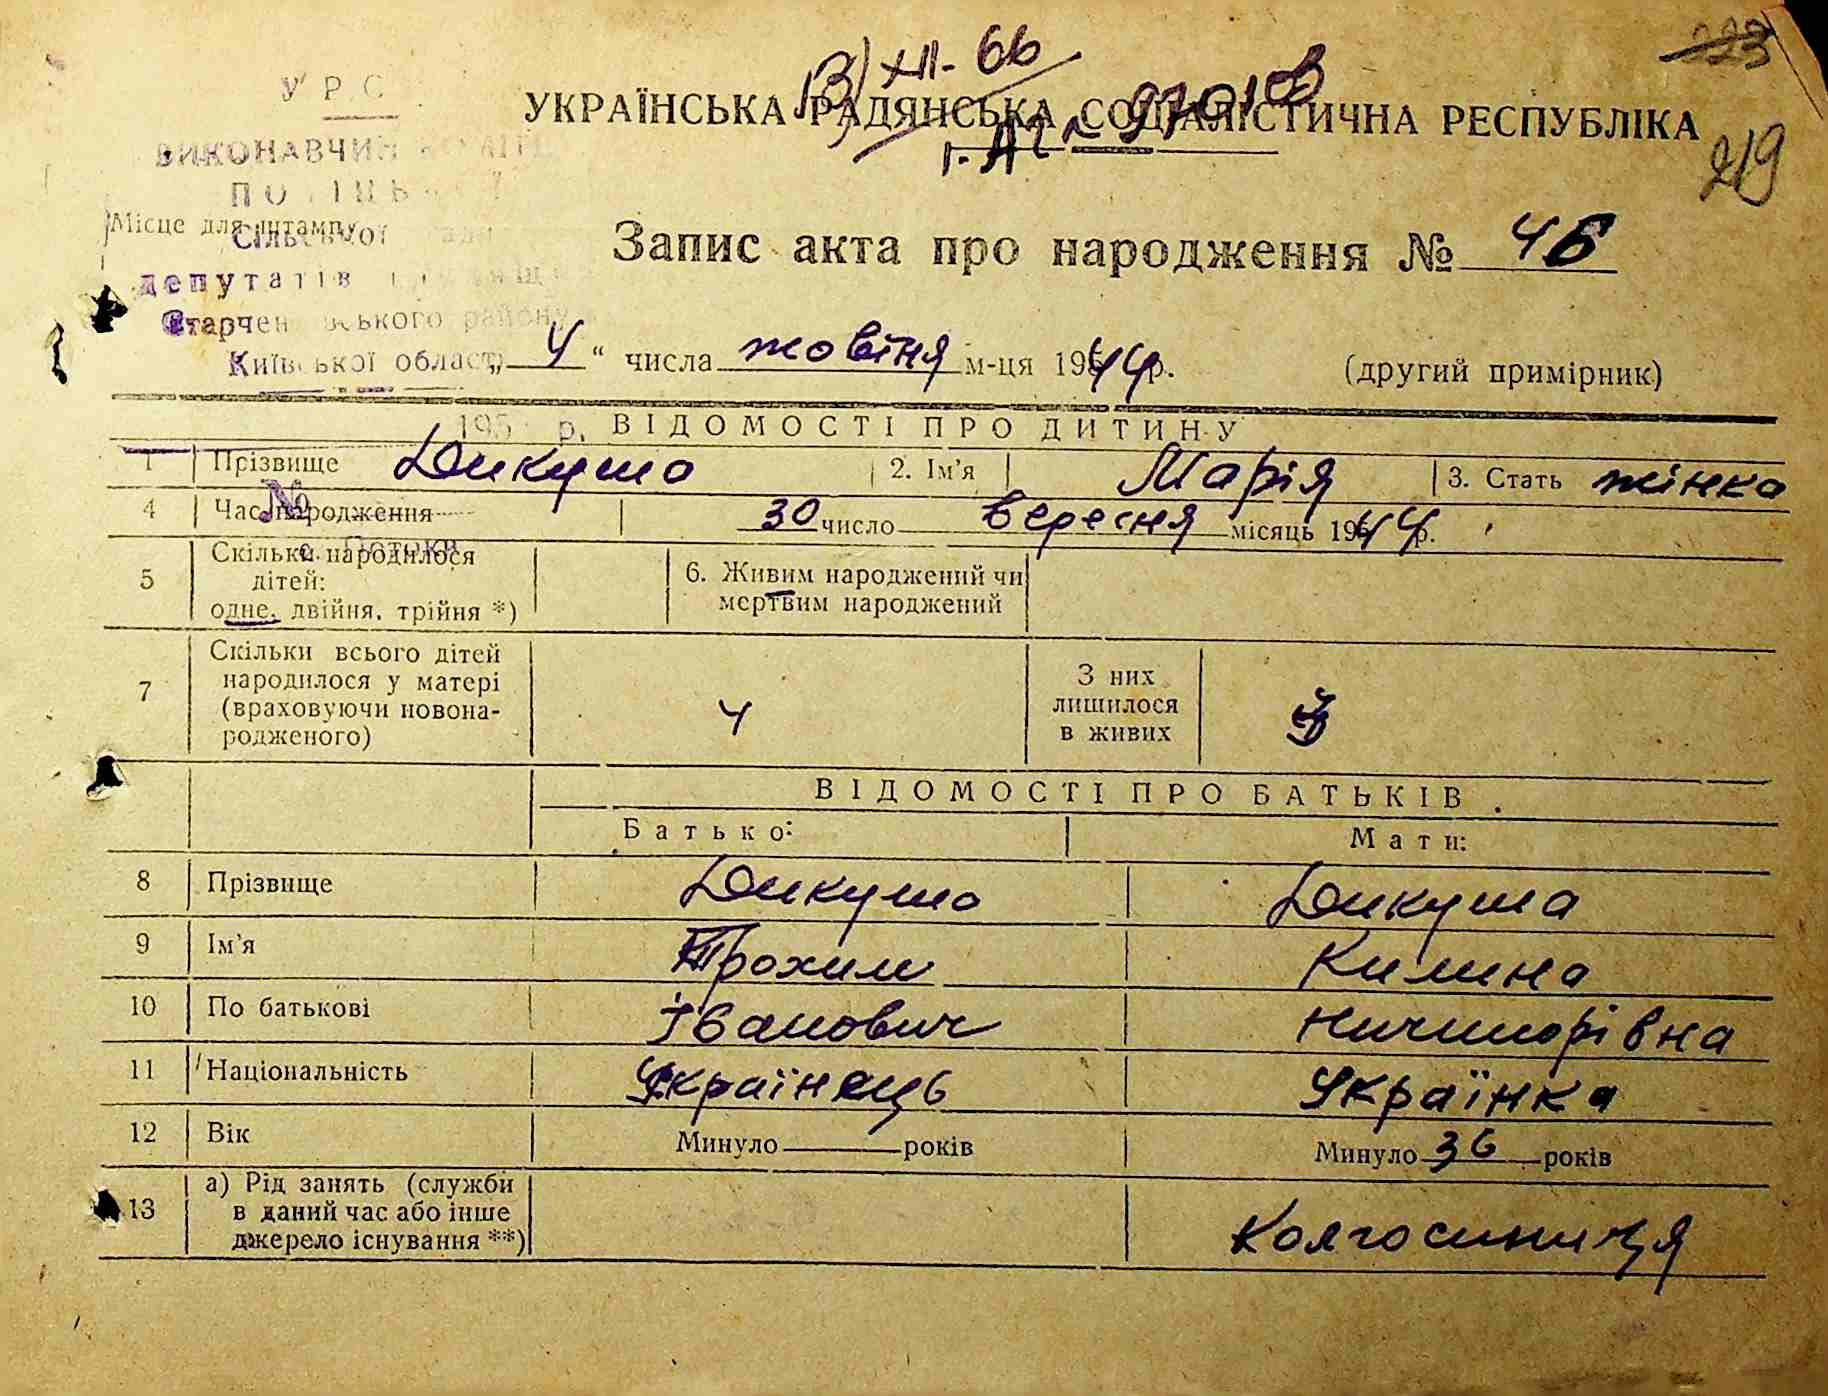 223
13/XII-66
УКРАЇНСЬКА РАДЯНСЬКА СОЦІАЛІСТИЧНА РЕСПУБЛІКА
219
У Р С
ВИКОНАВЧИЙ
Місце для штампу
Сільської
депутатів
Київської області
Запис акта про народження № 46
„ 4 “ числа жовтня м-ця 195 44 р. (другий примірник)
195 р.
ВІДОМОСТІ ПРО ДИТИНУ
1 Прізвище Дикуша 2. Ім'я Марія 3. Стать жінка
№
4 Час народження 30 число вересня місяць 195 44 р.
с. Потоки
5 Скільки народилося дітей: одне, двійня, трійня *) 6. Живим народжений чи мертвим народжений
7 Скільки всього дітей народилося у матері (враховуючи новонародженого) 4 З них лишилося в живих
ВІДОМОСТІ ПРО БАТЬКІВ
Батько: Мати:
8 Прізвище Дикуша Дикуша
9 Ім'я Трохим Килина
10 По батькові Іванович Ничипорівна
11 Національність Українець Українка
12 Вік Минуло років Минуло 36 років
13 а) Рід занять (служби в даний час або інше джерело існування **) Колгоспниця